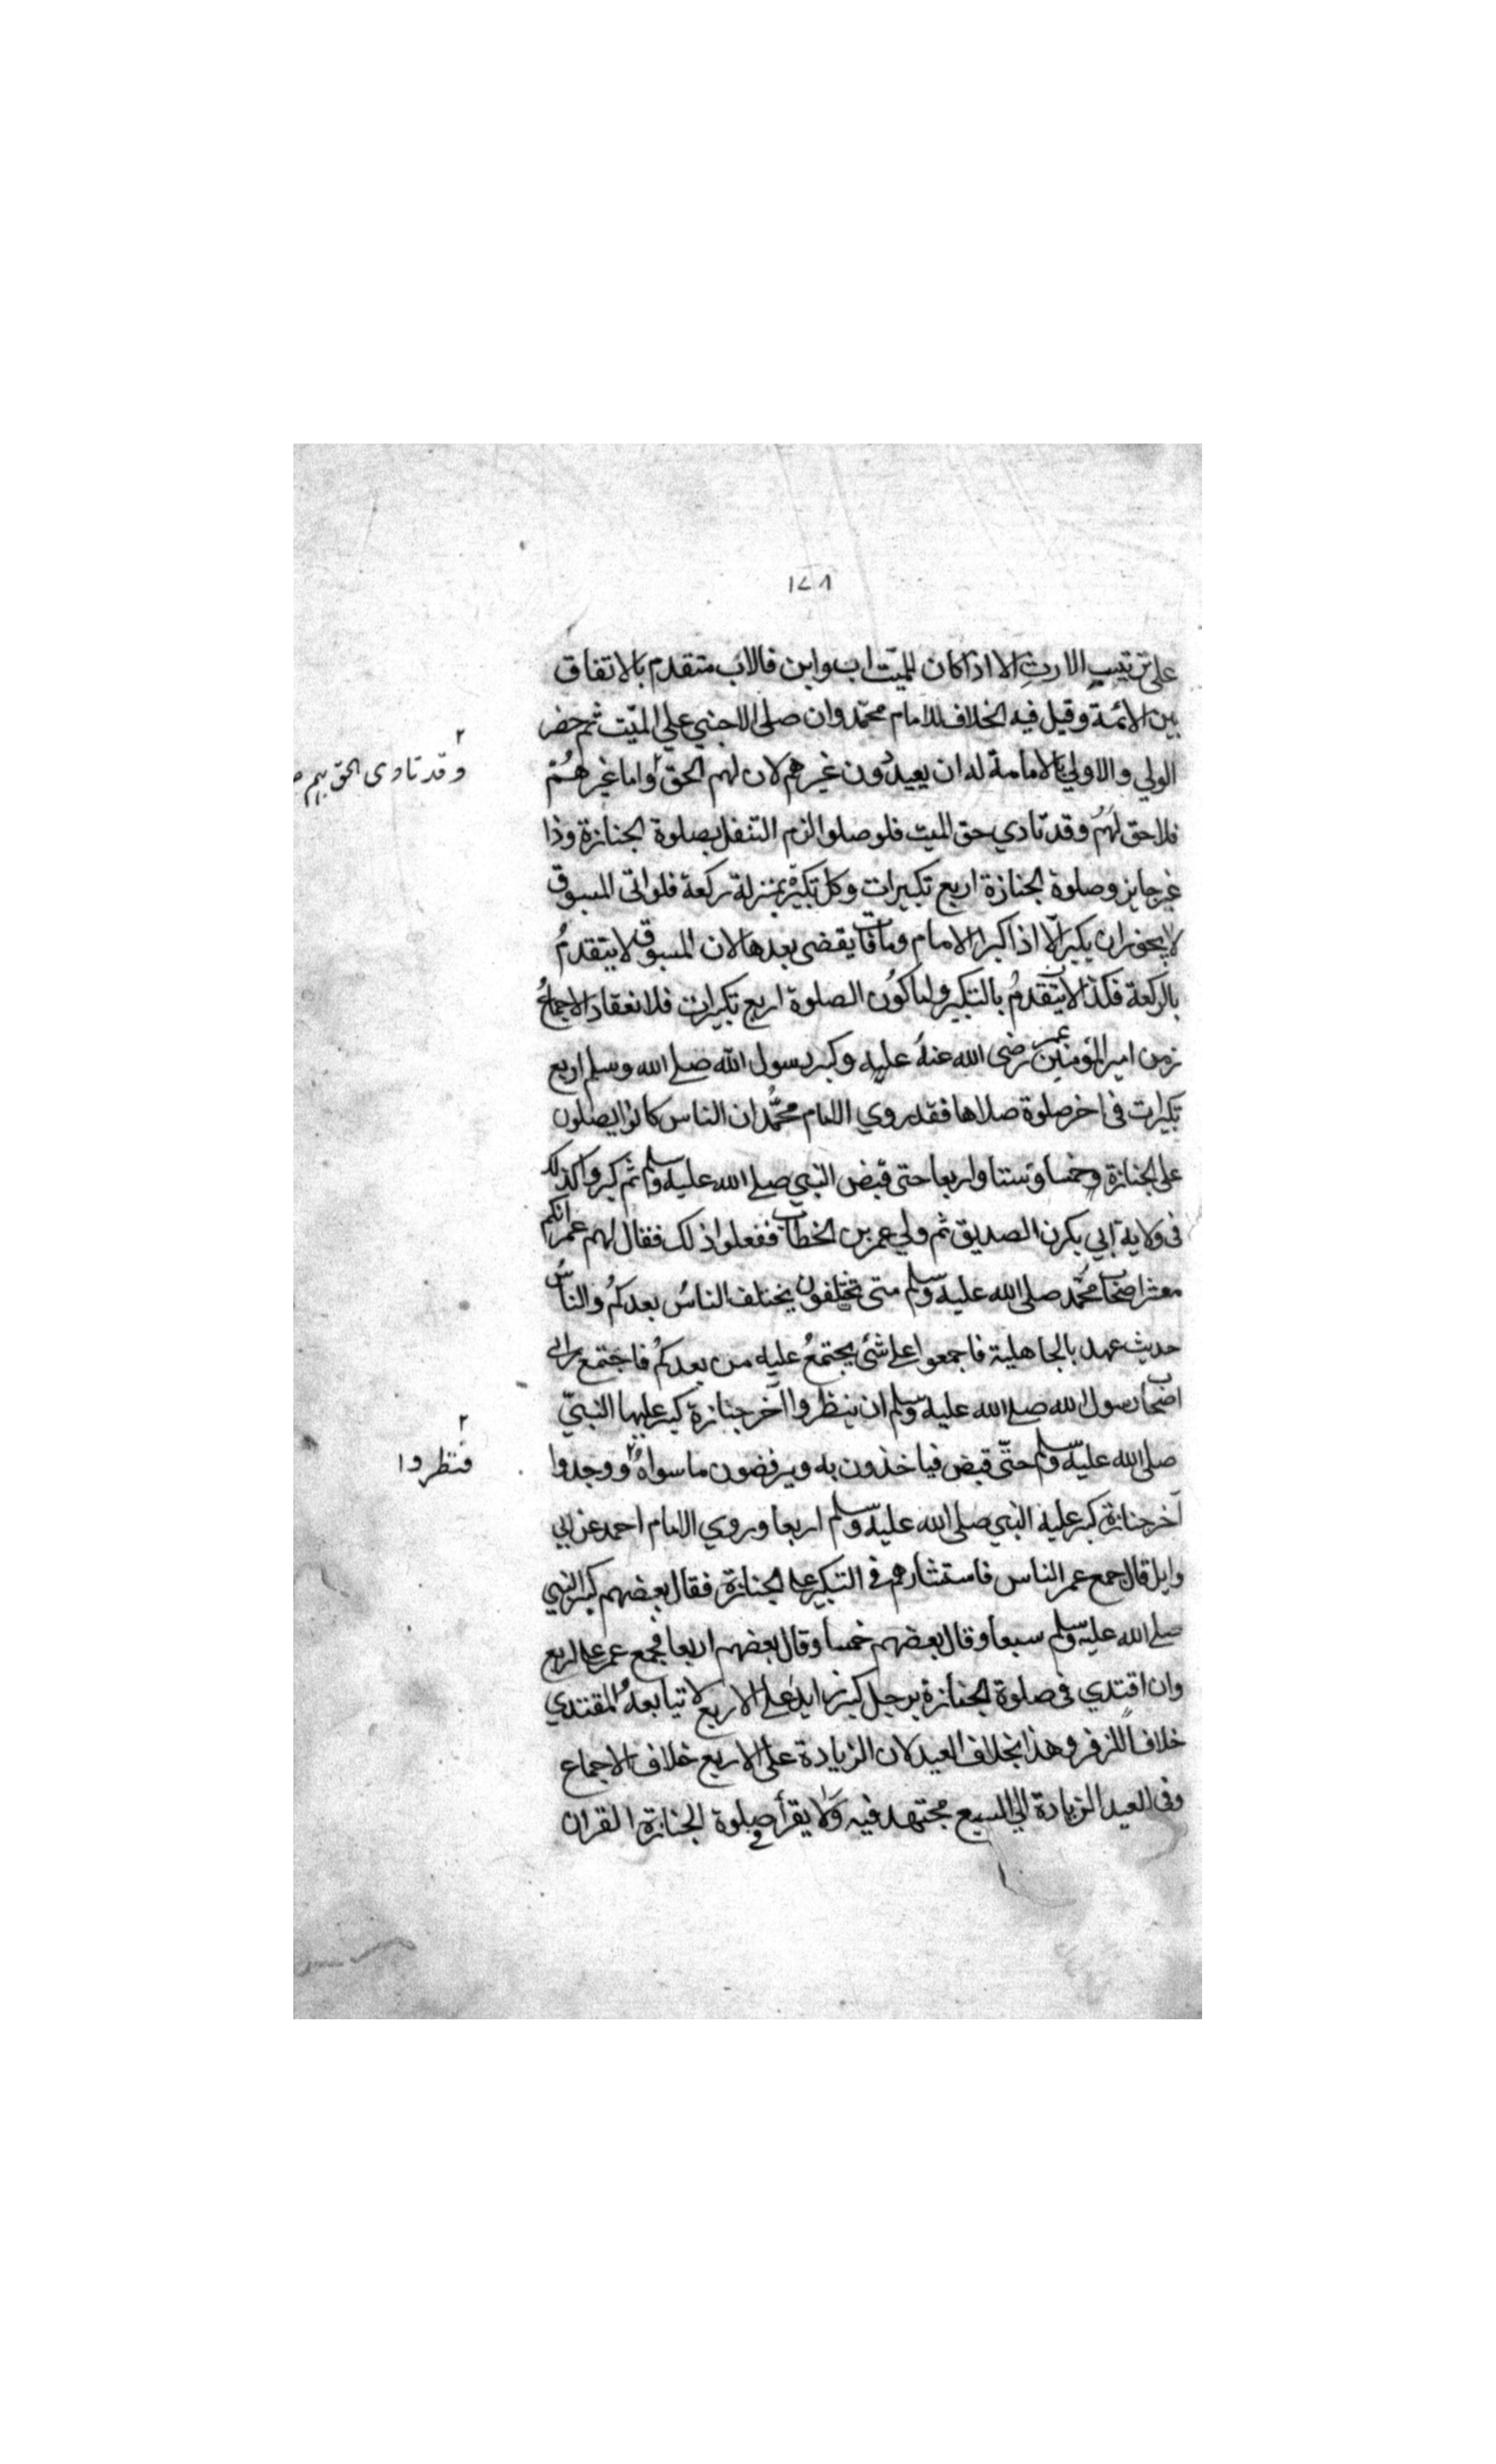 ١٧٨
على ترتيب الارث الا اذا كان للميت اب وابن فالاب متقدم بالاتفاق
بين الائمة وقيل فيه الخلاف للامام محمّد وان صلى الاجنبي علي الميّت ثم حضر
الولي والاولي بالامامة له ان يعيد دون غيرهم لان لهم الحق ٢ واما غيرهُمْ
وقد تادى الحق بهم صح
فلا حق لهُم وقد تادي حق الميت فلو صلوا لزم التنفل بصلوة الجنازة وذا
غير جايز وصلوة الجنازة اربع تكبيرات وكل تكبيرة بمنزلة ركعة فلو اتى المسبوق
لا يجوز ان يكبر الّا اذا كبر الامام وما فات يقضى بعدها لان المسبوق لا يتقدمُ
بالركعة فكذا لا يتقدمُ بالتكبير واما كوُن الصلوة اربع تكبيرات فلانعقاد الاجماعُ
زمن امير المؤمنين عمر رضى الله عنهُ عليه وكبر رسول الله صلے الله وسلم اربع
تكبيرات فى اخر صلوة صلاها فقد روي الامام محمُّد ان الناس كانوا يصلون
على الجنازة وخمسا وستا واربعا حتى قبض النبي صلے الله عليه وسلم ثم كبروا كذلك
فى ولاية ابي بكرن الصديق ثم ولي عمر بن الخطاب ففعلوا ذلك فقال لهم عمر انكم
معشر اصحاب محمّد صلى الله عليه وسلم متى تختلفون يختلف الناسُ بعدكمُ والناسُ
حديث عهد بالجاهلية فاجمعوا علے شئ يجتمعُ عليه من بعدكمُ فاجتمع راي
اصحاب رسول الله صلے الله عليه وسلم ان ينظروا آخر جنازة كبر عليها النبيّ
صلى الله عليه وسلم حتّى قبض فياخذون به ويرفضون ما سواهُ ٢ ووجدوا
فنظروا
آخر جنازة كبر عليه النبي صلى الله عليه وسلم اربعا وروي الامام احمد عن ابي
وايل قال جمع عمر الناس فاستشارهم فى التكبير علے الجنازة فقال بعضهم كبر النبي
صلے الله عليه وسلم سبعا وقال بعضهم خمسا وقال بعضهم اربعا فجمع عمر علے اربع
وان اقتدي فى صلوة الجنازة برجل كبر زايدا على الاربع لا يتابعهُ المقتدي
خلافا للزفر وهذا بخلاف العيد لان الزيادة على الاربع خلاف الاجماع
وفى العيد الزيادة الي السبع مجتهد فيه ولا يقرأ فى صلوة الجنازة القران